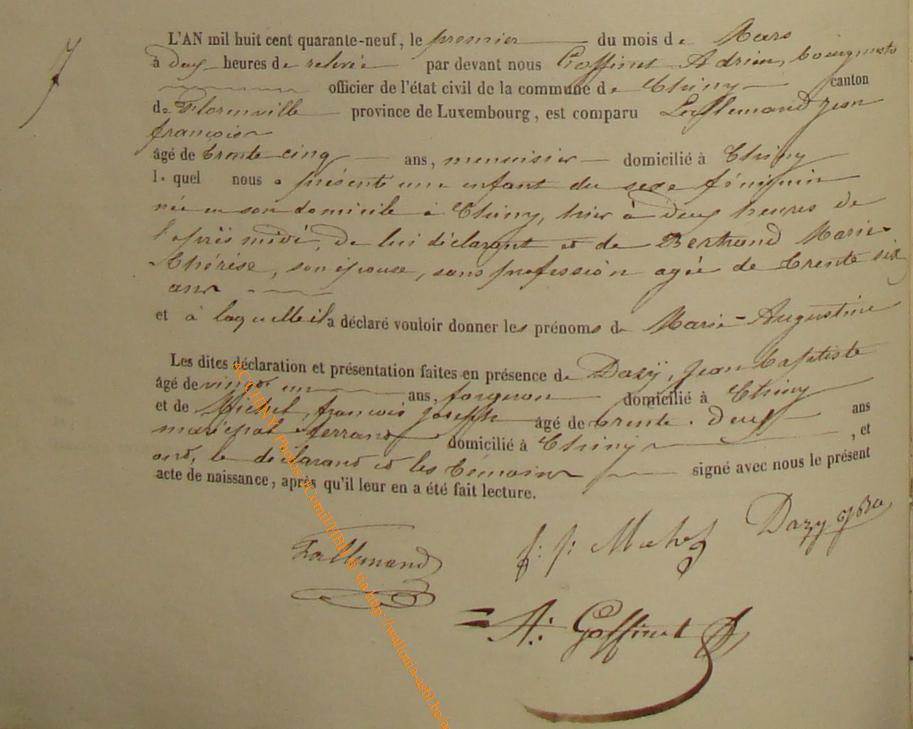 7
L'AN mil huit cent quarante-neuf, le premier du mois de Mars
à deux heures de relevée par devant nous Goffinet Adrien, bourgmestre
officier de l'état civil de la commune de Chiny canton
de Florenville province de Luxembourg, est comparu Lallemand Jean
françois
âgé de trente cinq ans, menuisier domicilié à Chiny
lequel nous a présenté une enfant du sexe féminin
née en son domicile à Chiny, hier à deux heures de
l'après midi, de lui déclarant et de Bertrand Marie
Thérèse, son épouse, sans profession agée de trente six
ans
et à laquelle il a déclaré vouloir donner les prénoms de Marie-Augustine
Les dites déclaration et présentation faites en présence de Dazÿ, Jean Baptiste
âgé de vingt un ans, forgeron domicilié à Chiny
et de Michel, françois Joseph âgé de trente-deux ans
maréchal ferrant domicilié à Chiny, et
ont, le déclarant et les témoins signé avec nous le présent
acte de naissance, après qu'il leur en a été fait lecture.
Lallemand f: j: Michel Dazy
A: Goffinet